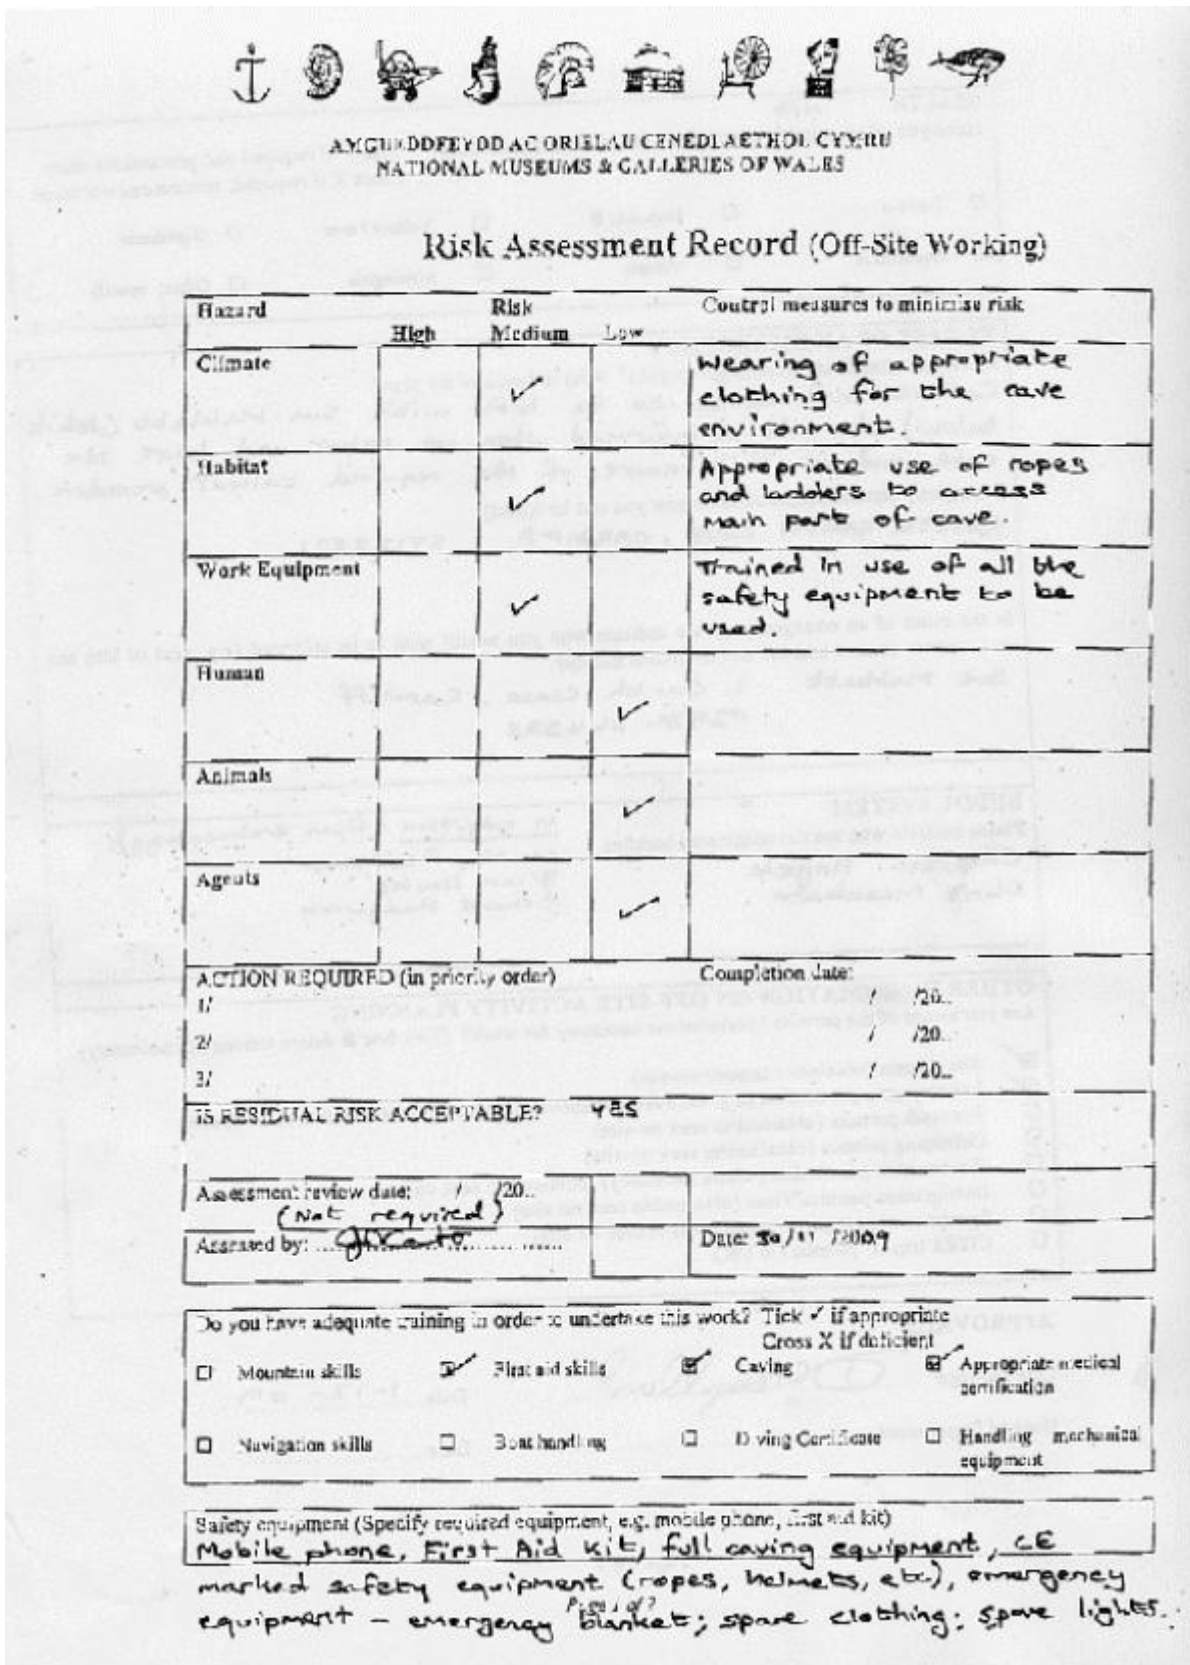 AMGUEDDFEYDD AC ORIELAU CENEDLAETHOL CYMRU
NATIONAL MUSEUMS & GALLERIES OF WALES
Risk Assessment Record (Off-Site Working)
Hazard Risk Control measures to minimise risk
High Medium Low
Climate ✓ Wearing of appropriate
clothing for the cave
environment.
Habitat ✓ Appropriate use of ropes
and ladders to access
main part of cave.
Work Equipment ✓ Trained in use of all the
safety equipment to be
used.
Human ✓
Animals ✓
Agents ✓
ACTION REQUIRED (in priority order) Completion date:
1/ / /20..
2/ / /20..
3/ / /20..
IS RESIDUAL RISK ACCEPTABLE? YES
Assessment review date: / /20..
(Not required)
Assessed by: Date: 30/11/2009
Do you have adequate training in order to undertake this work? Tick ✓ if appropriate
Cross X if deficient
☐ Mountain skills ☑ First aid skills ☑ Caving ☑ Appropriate medical
certification
☐ Navigation skills ☐ Boat handling ☐ Diving Certificate ☐ Handling mechanical
equipment
Safety equipment (Specify required equipment, e.g. mobile phone, first aid kit)
Mobile phone, First Aid Kit, full caving equipment, CE
marked safety equipment (ropes, helmets, etc), emergency
equipment – emergency blanket; spare clothing; spare lights.